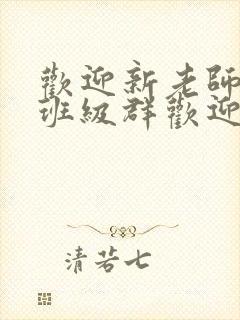 歡迎新老師
班級群歡迎
清若七